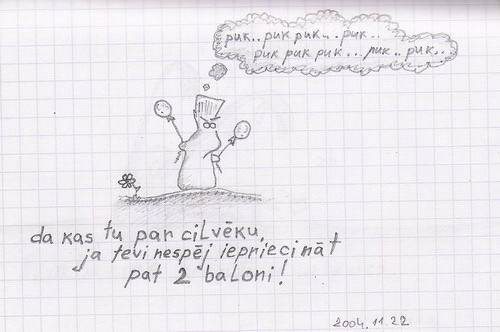 puk.. puk puk... puk..
puk puk puk... puk.. puk...
da kas tu par cilvēku,
ja tevi nespēj iepriecināt
pat 2 baloni!
2004.11.22